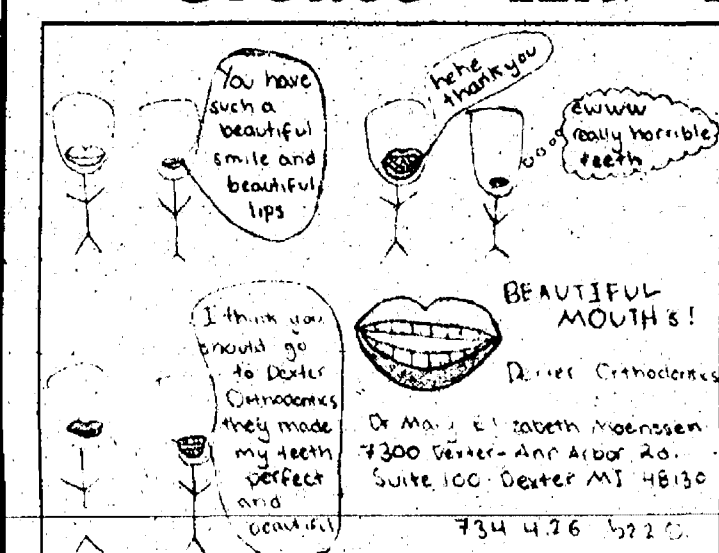 You have
such a
beautiful
smile and
beautiful
lips
hehe
thank you
ewww
really horrible
teeth
I think you
should go
to Dexter
Orthodontics
they made
my teeth
perfect
and
beautiful
BEAUTIFUL
MOUTH'S!
Dexter Orthodontics
Dr Mary Elizabeth
7300 Dexter-Ann Arbor Rd.
Suite 100 Dexter MI 48130
734 426 5220